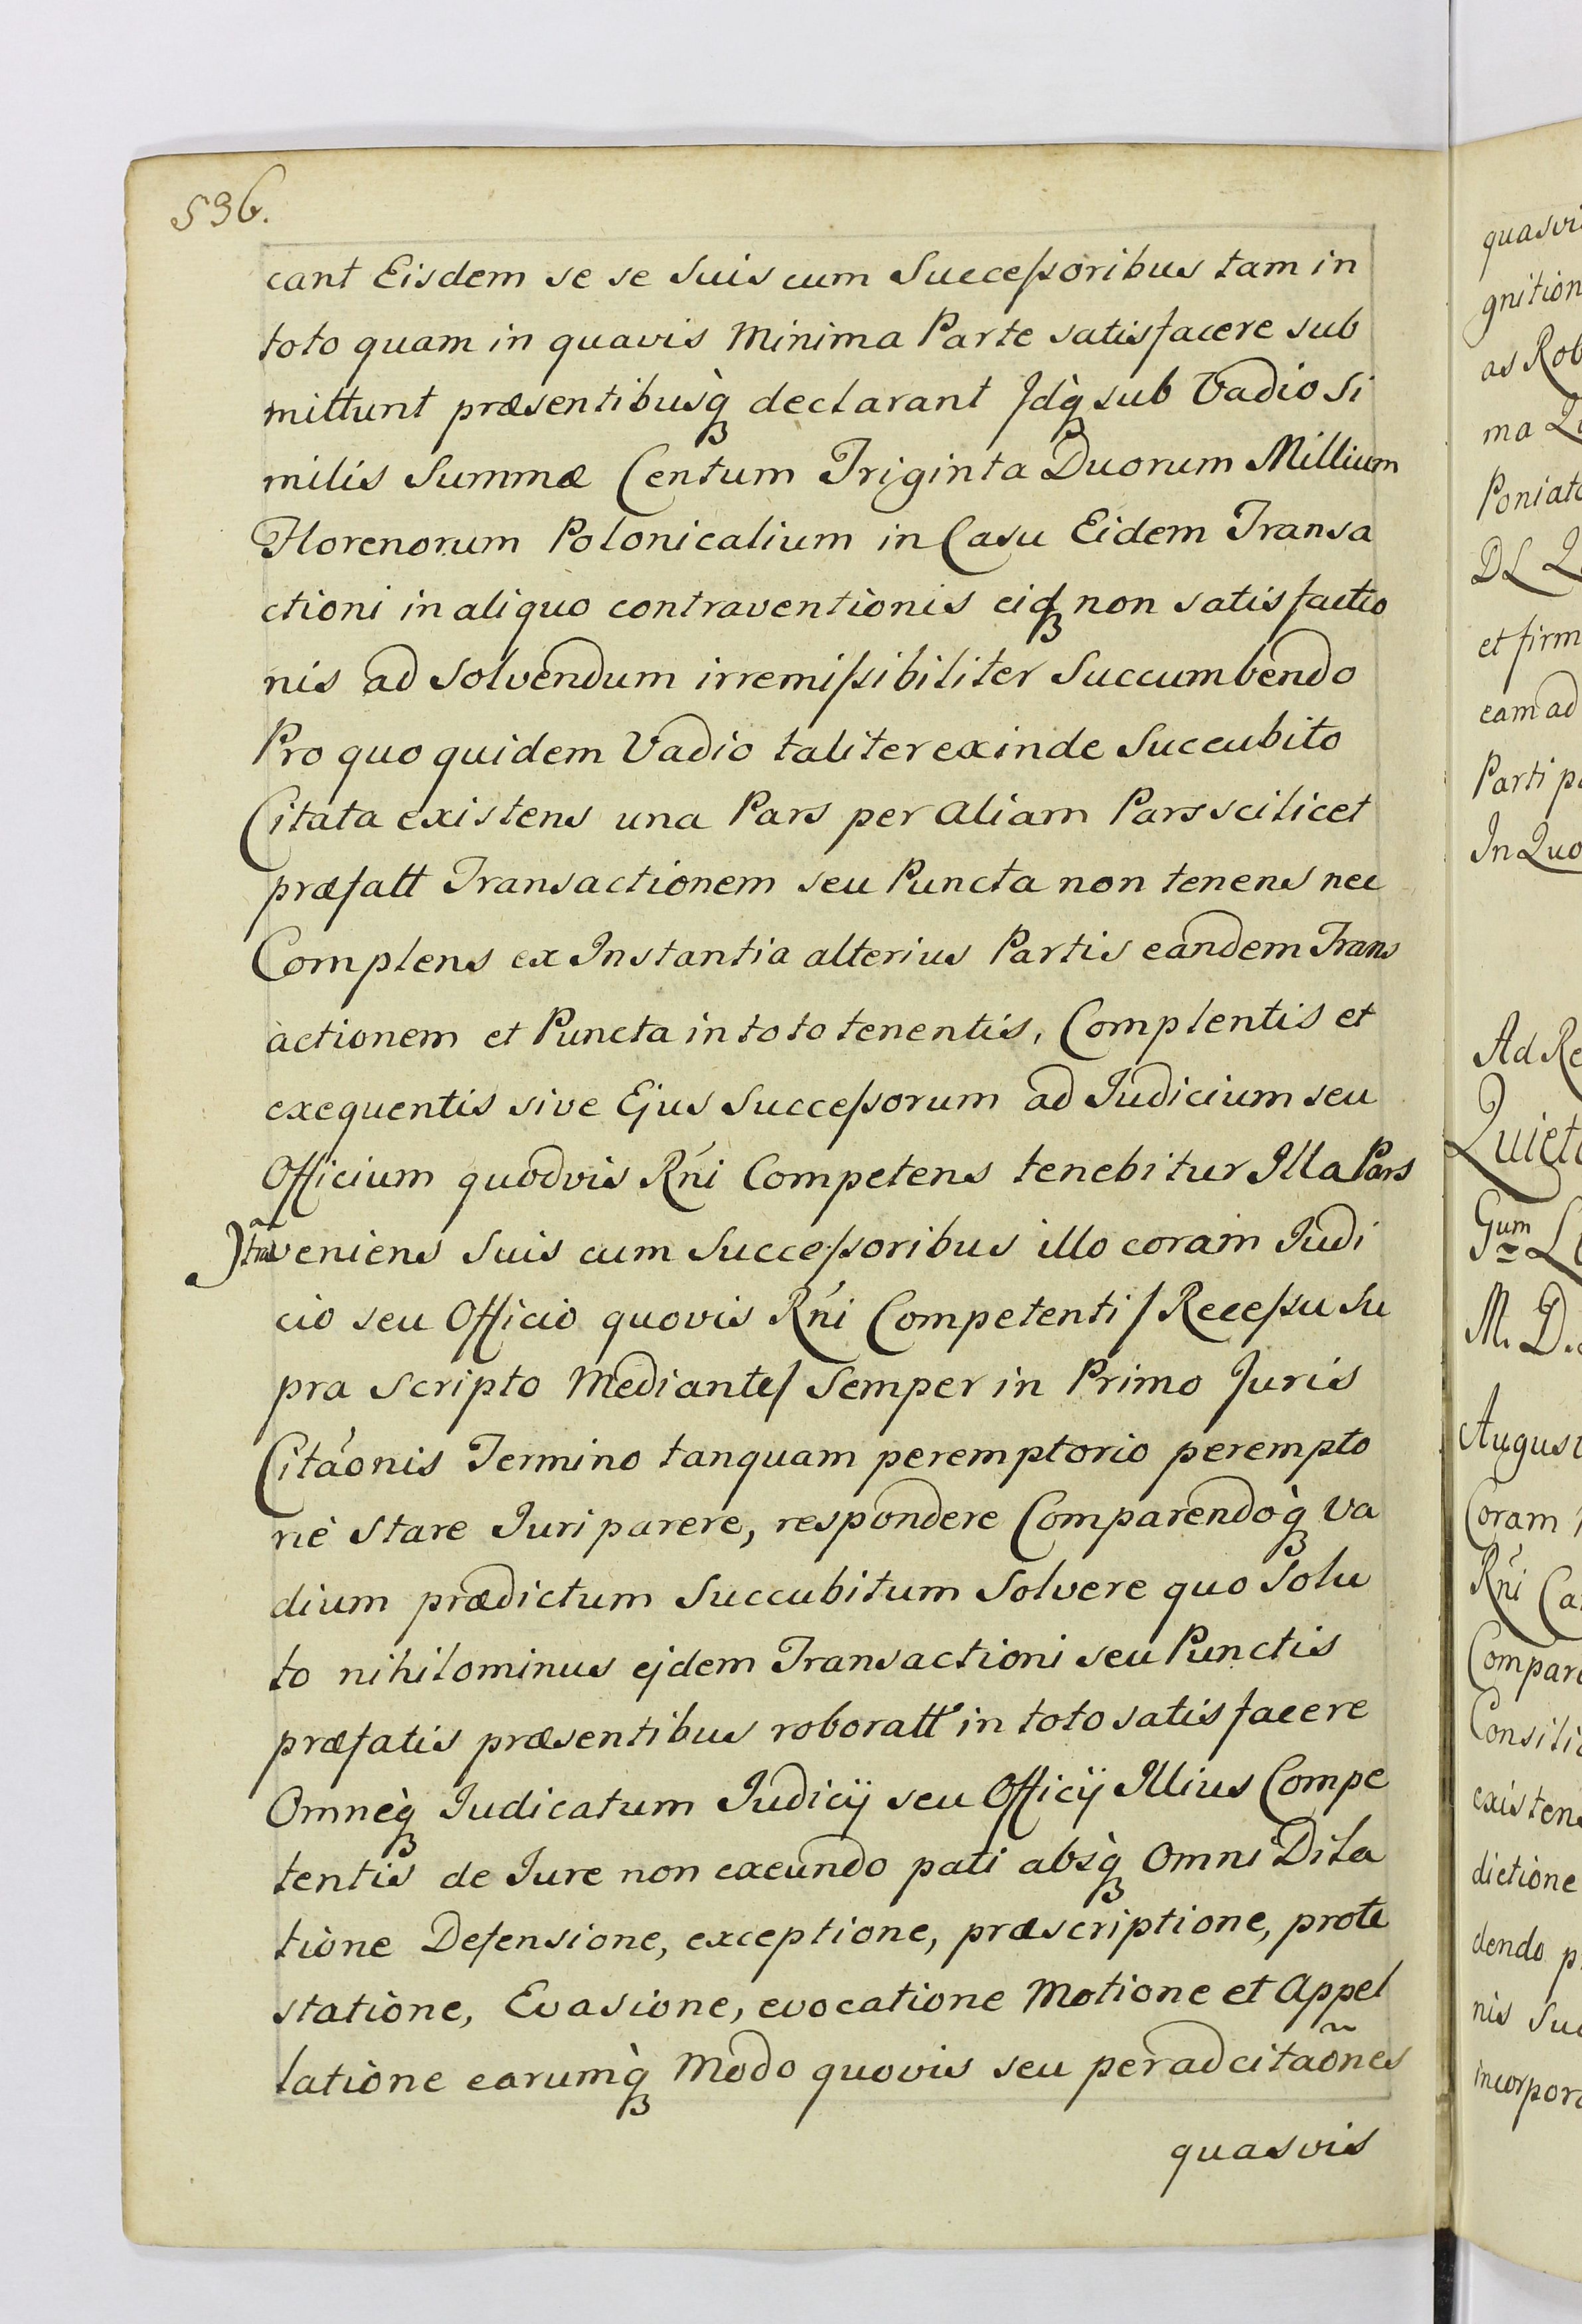 536.
cant Eisdem se se suis cum Successoribus tam in
toto quam in quavis Minima Parte satisfacere sub
mittunt præsentibusq̀ declarant Idq̀ sub Vadio si
milis Summæ Centum Triginta Duorum Millium
Florenorum Polonicalium in Casu Eidem Transa
ctioni in aliquo contraventionis eiq non satisfactio
nis ad solvendum irremissibiliter Succumbendo
Pro quo quidem Vadio taliter exinde Succubito
Citata existens una Pars per aliam Pars scilicet
præfatt Transactionem seu Puncta non tenens nec
Complens ex Instantia alterius Partis eandem Trans
actionem et Puncta in toto tenentis, Complentis et
exequentis sive Ejus Successorum ad Iudicium seu
Officium quodvis Rńi Competens tenebitur Illa Pars
veniens suis cum Successoribus illo coram Iudi
cio seu Officio quovis Rńi Competenti / Recessu su
pra scripto Mediante / Semper in Primo Juris
Citáonis Termino tanquam peremptorio perempto
riè stare Iuri parere, respondere Comparendoq̀ va
dium prædictum Succubitum Solvere quo solu
to nihilominus ejdem Transactioni seu Punctis
præfatis præsentibus roboratt in toto satisfacere
Omneq̀ Iudicatum Iudicÿ seu Officÿ Illius Compe
tentis de Iure non exeundo pati absq̀ Omni Dila
tione Defensione, exceptione, præscriptione, prote
statione, Evasione, evocatione Motione et Appel
latione earumq̀ Modo quovis seu per adcitaõnes
quasvis
quasvi
gnition
as Rob
ma
Poniato
DL
et firm
eam ad
Parti p
In Quo
Ad Re
Quiet
Gum
M. D.
August
Coram
Rńi Ca
Compar
Consili
existen
dictione
dendo p
nis Suc
incorpor